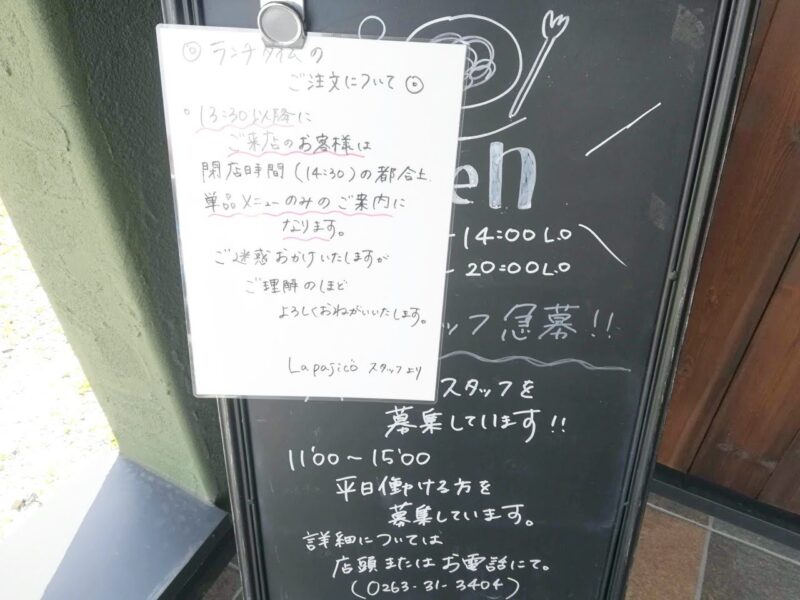 ◎ ランチタイムの
ご注文について ◎
。13:30以降に
ご来店のお客様は
閉店時間(14:30)の都合上、
単品メニューのみのご案内に
なります。
ご迷惑おかけいたしますが
ご理解のほど
よろしくおねがいいたします。
Lapajico スタッフより
en
14:00 L.O
20:00 L.O
ッフ 急募!!
スタッフを
募集しています!!
11:00〜15:00
平日働ける方を
募集しています。
詳細については
店頭またはお電話にて。
(0263-31-3404)